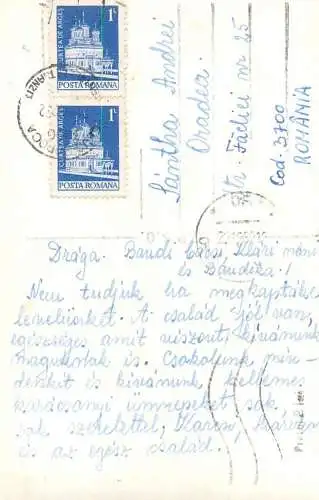 CURTEA DE ARGEȘ
1L
POSTA ROMANA
CURTEA DE ARGEȘ
1L
POSTA ROMANA
Sántha Andrei
Oradea
Str. Făcliei nr 25
Cod. 3700
ROMÂNIA
Drága Bandi Klári néni
és Bandika!
Nem tudjuk ha megkaptátok
levelünket. A család jól van,
egészséges amit viszont kívánunk
magunknak is. Csókolunk min-
denkit és kívánunk kellemes
karácsonyi ünnepeket sok
sok szeretettel,
és az egész család.